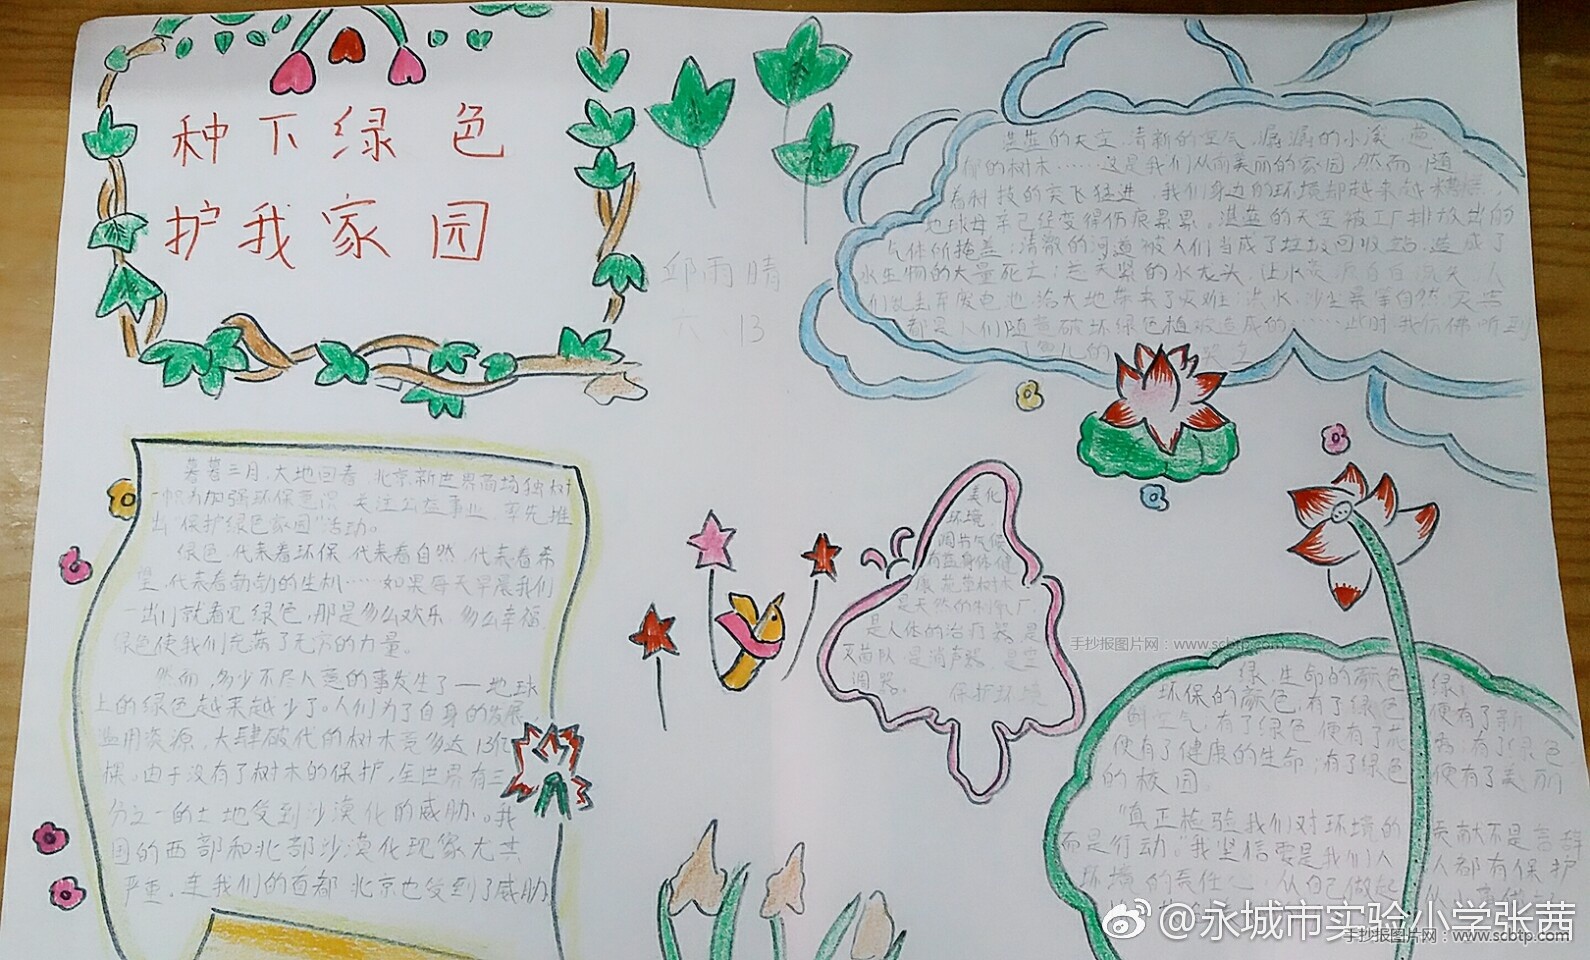 种下绿色
护我家园
邱雨晴
六.13
湛蓝的天空,清新的空气,潺潺的小溪,葱
郁的树木……这是我们从前美丽的家园,然而,随
着科技的突飞猛进,我们身边的环境却越来越糟糕,
地球母亲已经变得伤痕累累。湛蓝的天空被工厂排放出的
气体所掩盖;清澈的河道被人们当成了垃圾回收站,造成了
水生物的大量死亡;
们乱丢弃废电池,给大地带来了灾难;洪水、沙尘暴等自然灾害
都是人们随意破坏绿色植被造成的……此时,我仿佛听到
暮暮三月,大地回春,北京新世界商场独树
一帜为加强环保意识,关注公益事业,率先推
出“保护绿色家园”活动。
绿色,代表着环保,代表着自然,代表着希
望,代表着勃勃的生机……如果每天早晨我们
一出门就看见绿色,那是多么欢乐,多么幸福,
绿色使我们充满了无穷的力量。
然而,多少不尽人意的事发生了——地球
上的绿色越来越少了。人们为了自身的发展,
滥用资源,大肆破伐的树木竟多达13亿
棵,由于没有了树木的保护,全世界有三
分之一的土地受到沙漠化的威胁。我
国的西部和北部沙漠化现象尤其
严重,连我们的首都北京也受到了威胁
美化
环境,
调节气候
有益身体健
康,花草树木
是天然的制氧厂,
是人体的治疗器,是
灭菌队,是消声器,是空
调器。 保护环境
手抄报图片网:www.scbtp.com
绿,生命的颜色,绿,
环保的颜色,有了绿色,便有了新
鲜空气;有了绿色,便有了花香;有了绿色
便有了健康的生命;有了绿色,便有了美丽
的校园。
“真正检验我们对环境的贡献不是言辞
而是行动。”我坚信要是我们人人都有保护
环境的责任心,从自己做起
@永城市实验小学张茜
手抄报图片网:www.scbtp.com